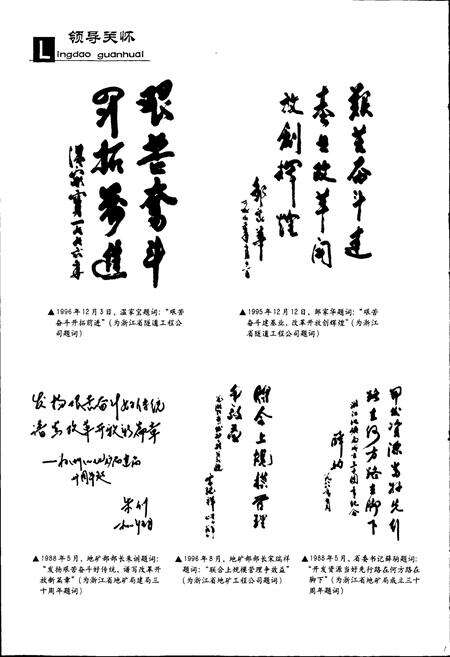 领导关怀
Lingdao guanhuai
艰苦奋斗
开拓前进
温家宝一九九六年
艰苦奋斗建
基业改革开
放创辉煌
邹家华
▲1996年12月3日，温家宝题词：“艰苦
奋斗开拓前进”（为浙江省隧道工程公
司题词）
▲1995年12月12日，邹家华题词：“艰苦
奋斗建基业，改革开放创辉煌”（为浙江
省隧道工程公司题词）
发扬艰苦奋斗好传统
谱写改革开放新篇章
朱训
联合上规模管理
争效益
宋瑞祥
开发资源当好先行
路在何方路在脚下
薛驹
▲1988年5月，地矿部部长朱训题词：
“发扬艰苦奋斗好传统，谱写改革开
放新篇章”（为浙江省地矿局建局三
十周年题词）
▲1996年8月，地矿部部长宋瑞祥
题词：“联合上规模管理争效益”
（为浙江省地矿工程公司题词）
▲1988年5月，省委书记薛驹题词：
“开发资源当好先行路在何方路在
脚下”（为浙江省地矿局成立三十
周年题词）